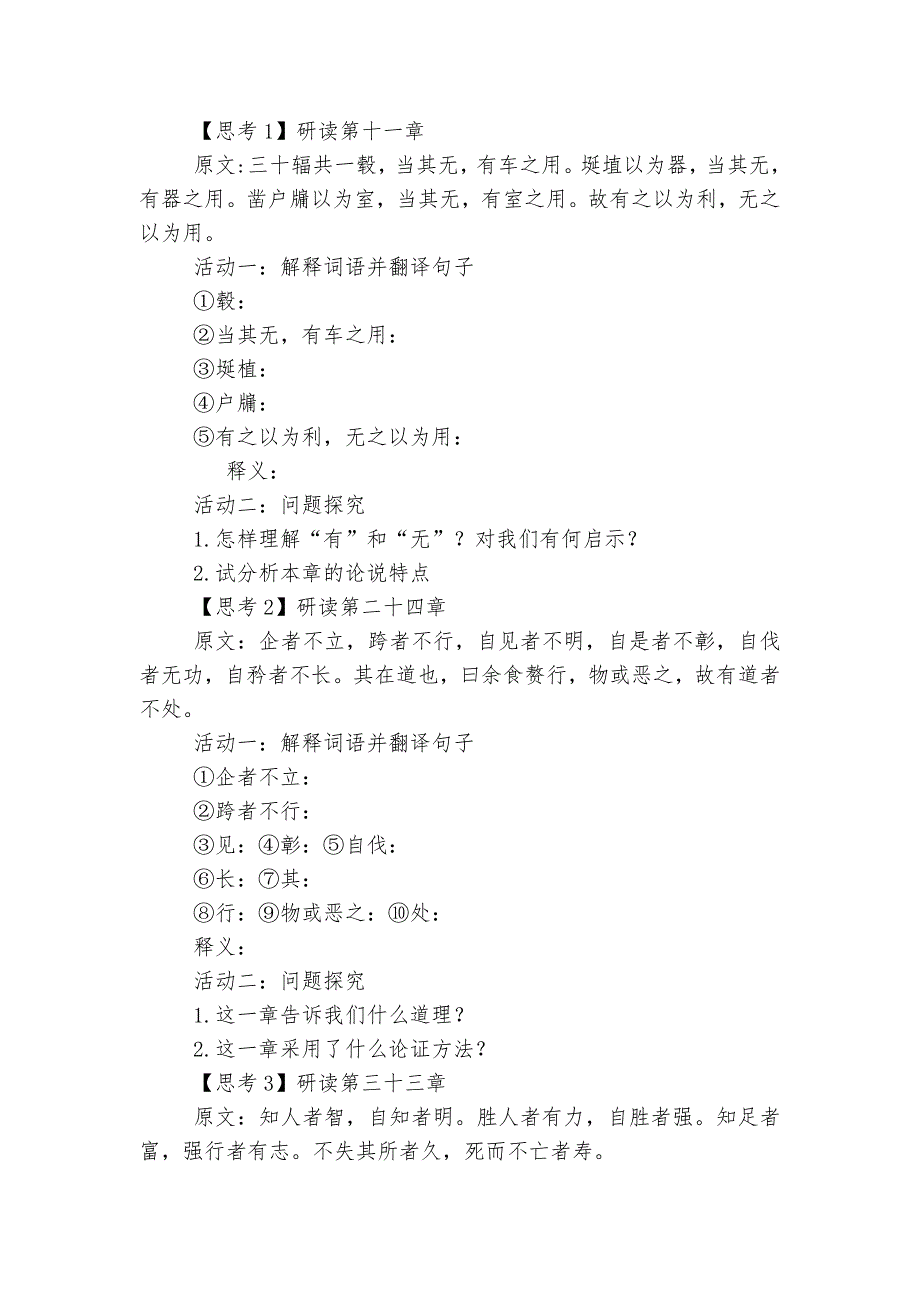 【思考1】研读第十一章
原文:三十辐共一毂，当其无，有车之用。埏埴以为器，当其无，
有器之用。凿户牖以为室，当其无，有室之用。故有之以为利，无之
以为用。
活动一：解释词语并翻译句子
①毂：
②当其无，有车之用：
③埏植：
④户牖：
⑤有之以为利，无之以为用：
释义：
活动二：问题探究
1.怎样理解“有”和“无”？对我们有何启示？
2.试分析本章的论说特点
【思考2】研读第二十四章
原文：企者不立，跨者不行，自见者不明，自是者不彰，自伐
者无功，自矜者不长。其在道也，曰余食赘行，物或恶之，故有道者
不处。
活动一：解释词语并翻译句子
①企者不立：
②跨者不行：
③见：④彰：⑤自伐：
⑥长：⑦其：
⑧行：⑨物或恶之：⑩处：
释义：
活动二：问题探究
1.这一章告诉我们什么道理？
2.这一章采用了什么论证方法？
【思考3】研读第三十三章
原文：知人者智，自知者明。胜人者有力，自胜者强。知足者
富，强行者有志。不失其所者久，死而不亡者寿。